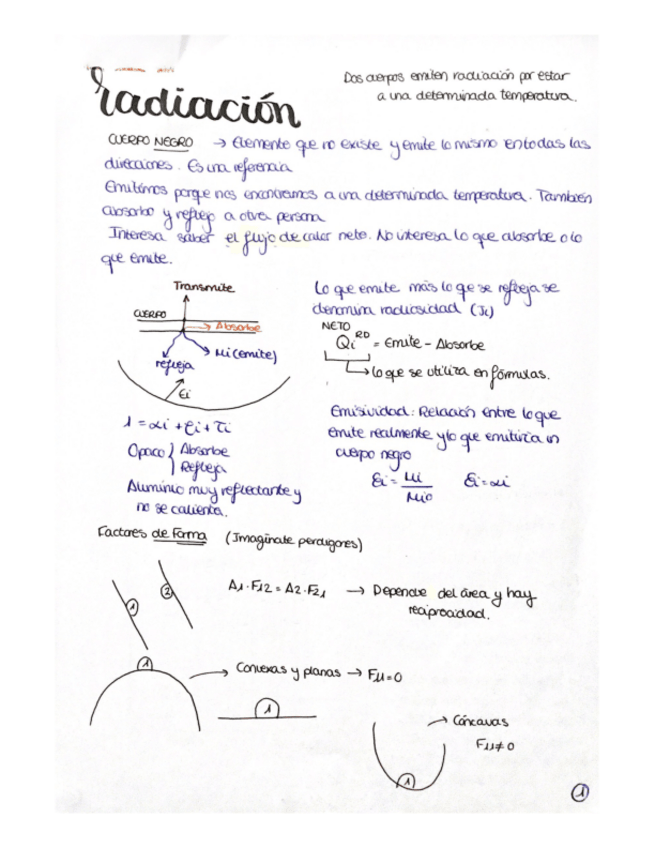 radiación
Dos cuerpos emiten radiación por estar
a una determinada temperatura.
CUERPO NEGRO → Elemento que no existe y emite lo mismo en todas las
direcciones. Es una referencia
Emitimos porque nos encontramos a una determinada temperatura. También
absorbo y reflejo a otra persona
Interesa saber el flujo de calor neto. No interesa lo que absorbe o lo
que emite.
Transmite
CUERPO
Absorbe
refleja
Mi (emite)
Ei
1 = αi + ρi + τi
Opaco } Absorbe
} Refleja
Aluminio muy reflectante y
no se calienta.
Lo que emite más lo que se refleja se
denomina radiosidad (Ji)
NETO
Qi RD = Emite - Absorbe
→ lo que se utiliza en fórmulas.
Emisividad: Relación entre lo que
emite realmente y lo que emitiría un
cuerpo negro
Ɛi = Mi / Mio Ɛi = αi
Factores de Forma (Imagínate perdigones)
1 2
A1 · F12 = A2 · F21 → Depende del área y hay
reciprocidad.
1
→ Convexas y planas → F11 = 0
1
→ Cóncavas
F11 ≠ 0
1
1